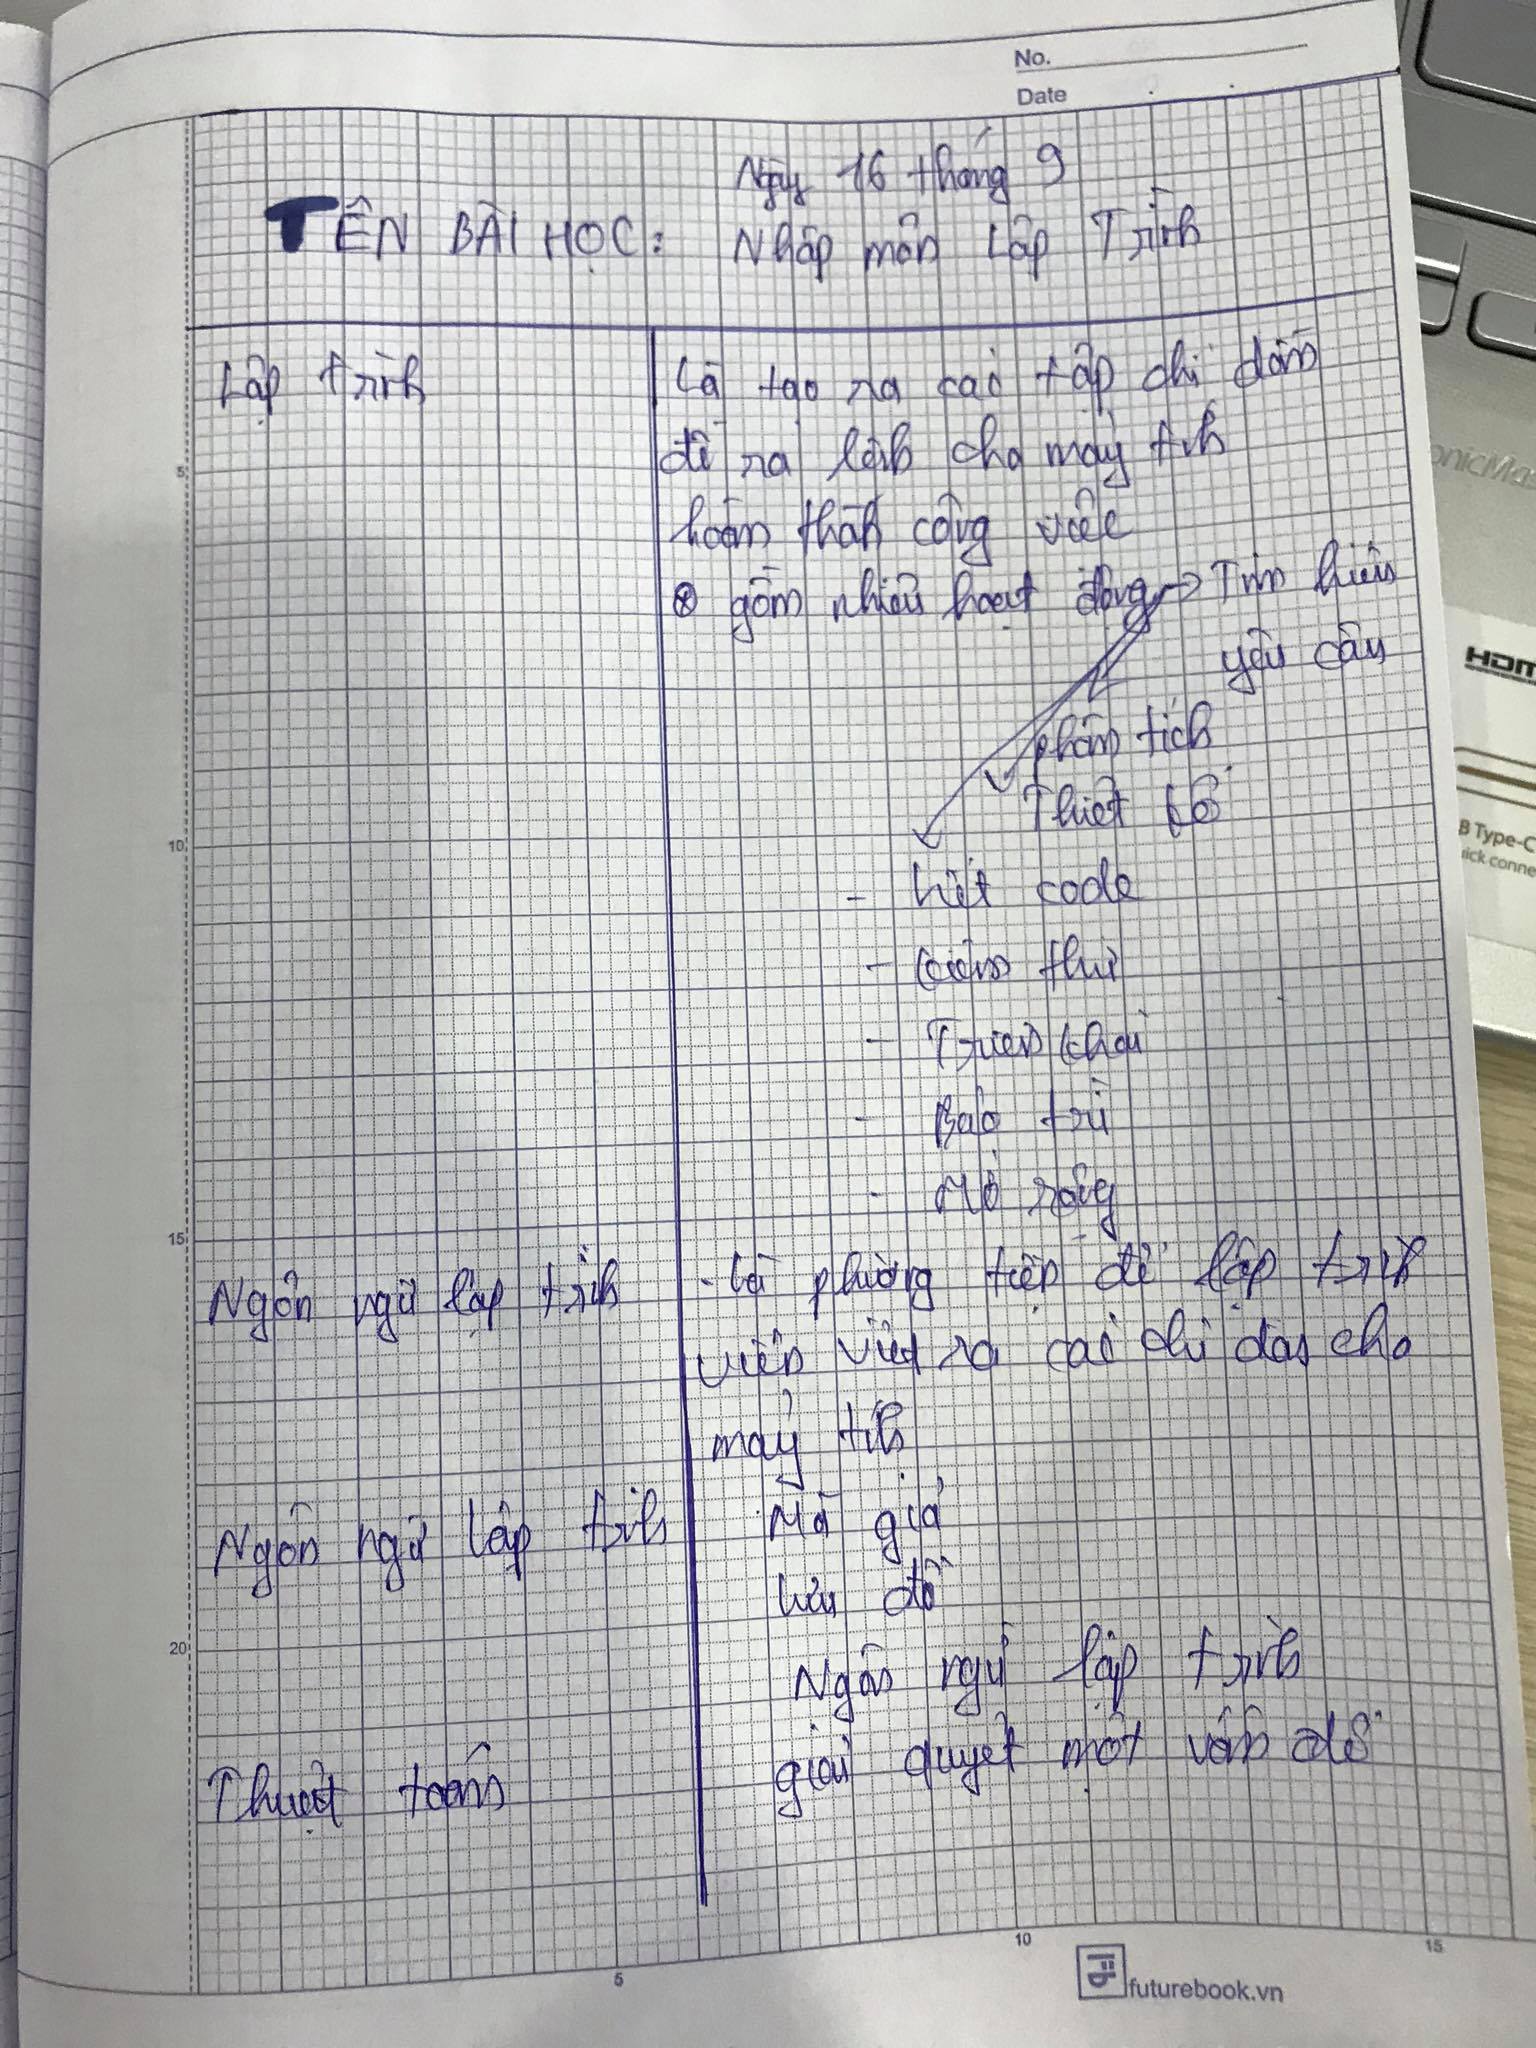 No.
Date
Ngày 16 tháng 9
TÊN BÀI HỌC: Nhập môn Lập Trình
Lập trình
Là tạo ra các tập chỉ dẫn
để ra lệnh cho máy tính
hoàn thành công việc
⊗ gồm nhiều hoạt động → Tìm hiểu
yêu cầu
phân tích
Thiết kế
- Viết code
- kiểm thử
- Triển khai
- Bảo trì
- Mở rộng
Ngôn ngữ lập trình
- Là phương tiện để lập trình
viên viết ra các chỉ dẫn cho
máy tính
Ngôn ngữ lập trình
Mã giả
Lưu đồ
Ngôn ngữ lập trình
Thuật toán
giải quyết một vấn đề
5
10
15
20
5
10
15
futurebook.vn
HDM
B Type-C
ick conne
onicMas